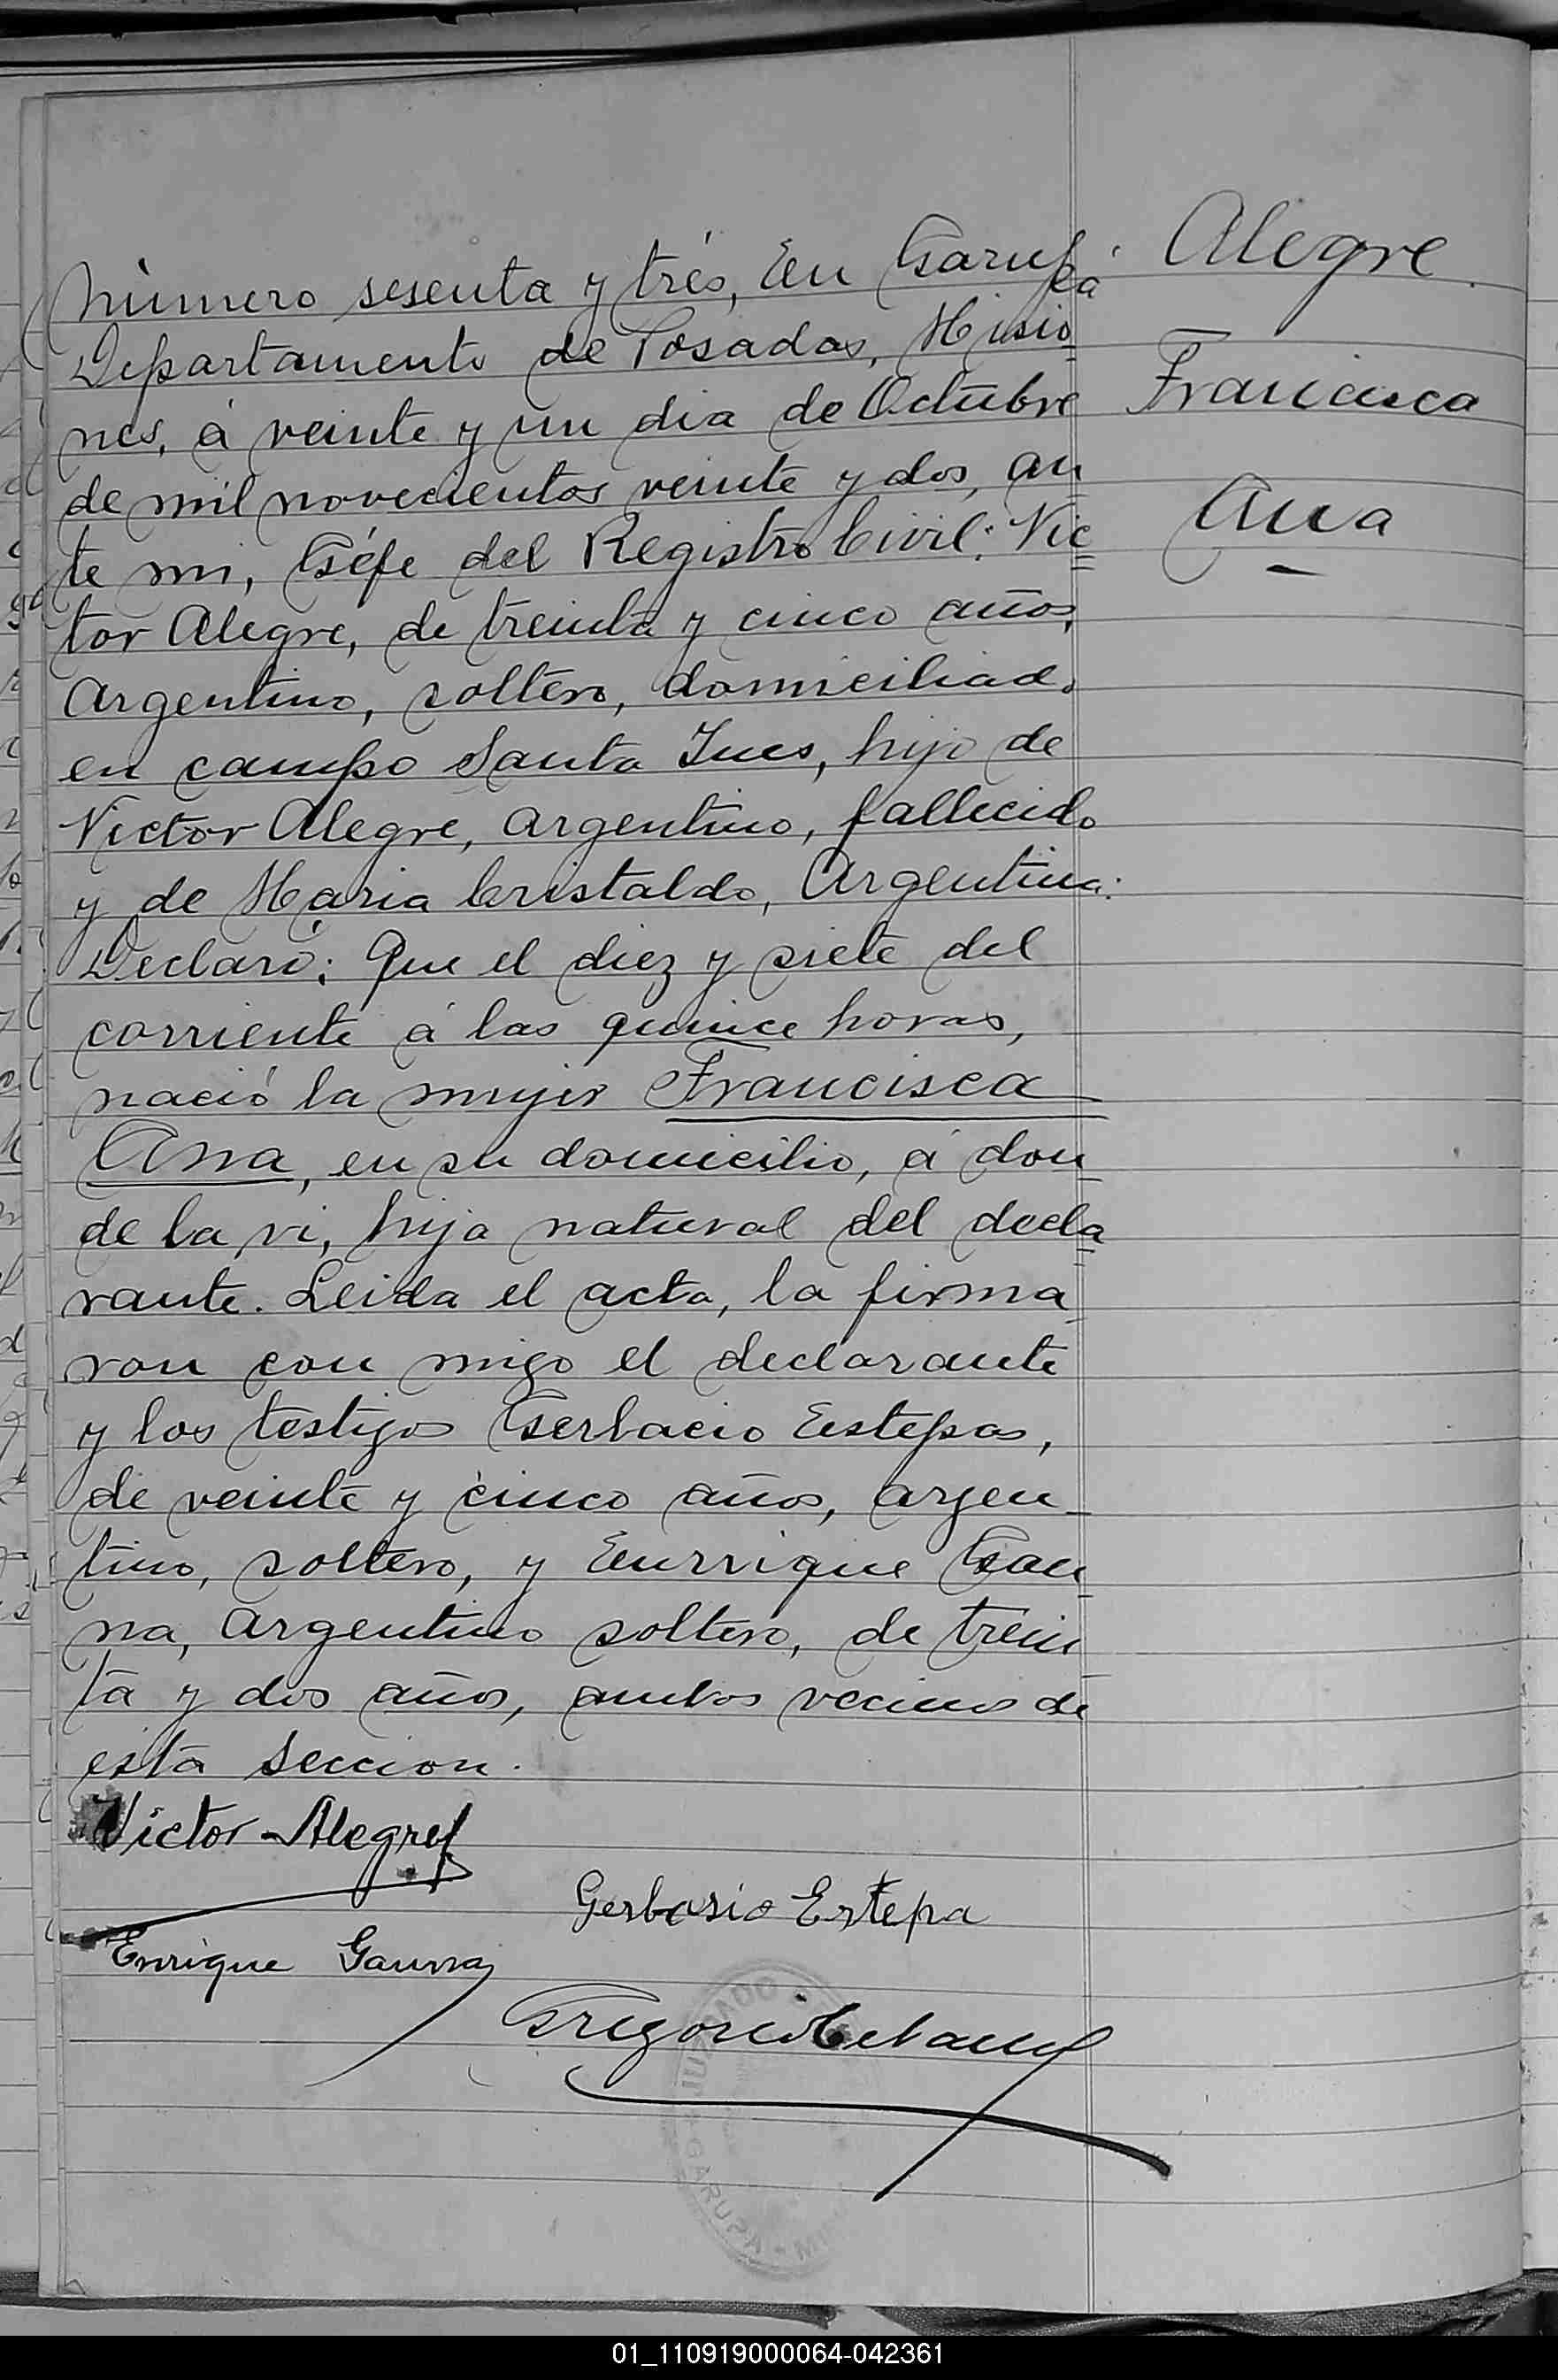 Número sesenta y trés, En Garupá
Departamento de Posadas, Misio
nes, á veinte y un dia de Octubre
de mil novecientos veinte y dos, an
te mi, Géfe del Registro Civil: Vic
tor Alegre, de treinta y cinco años,
Argentino, soltero, domiciliado
en campo Santa Ines, hijo de
Victor Alegre, argentino, fallecido
y de Maria Cristaldo, Argentina:
Declaró: Que el diez y siete del
corriente á las quince horas,
nació la mujer Francisca
Ana, en su domicilio, á don
de la vi, hija natural del decla
rante. Leida el acta, la firma
ron con migo el declarante
y los testigos Gerbacio Estepas,
de veinte y cinco años, argen
tino, soltero, y Enrrique Gau
na, argentino soltero, de trein
ta y dos años, ambos vecinos de
esta seccion.
Alegre
Francisca
Ana
Victor Alegre
Gerbasio Estepa
Enrique Gauna
Gregorio
JUZGADO
GARUPA
01_110919000064-042361